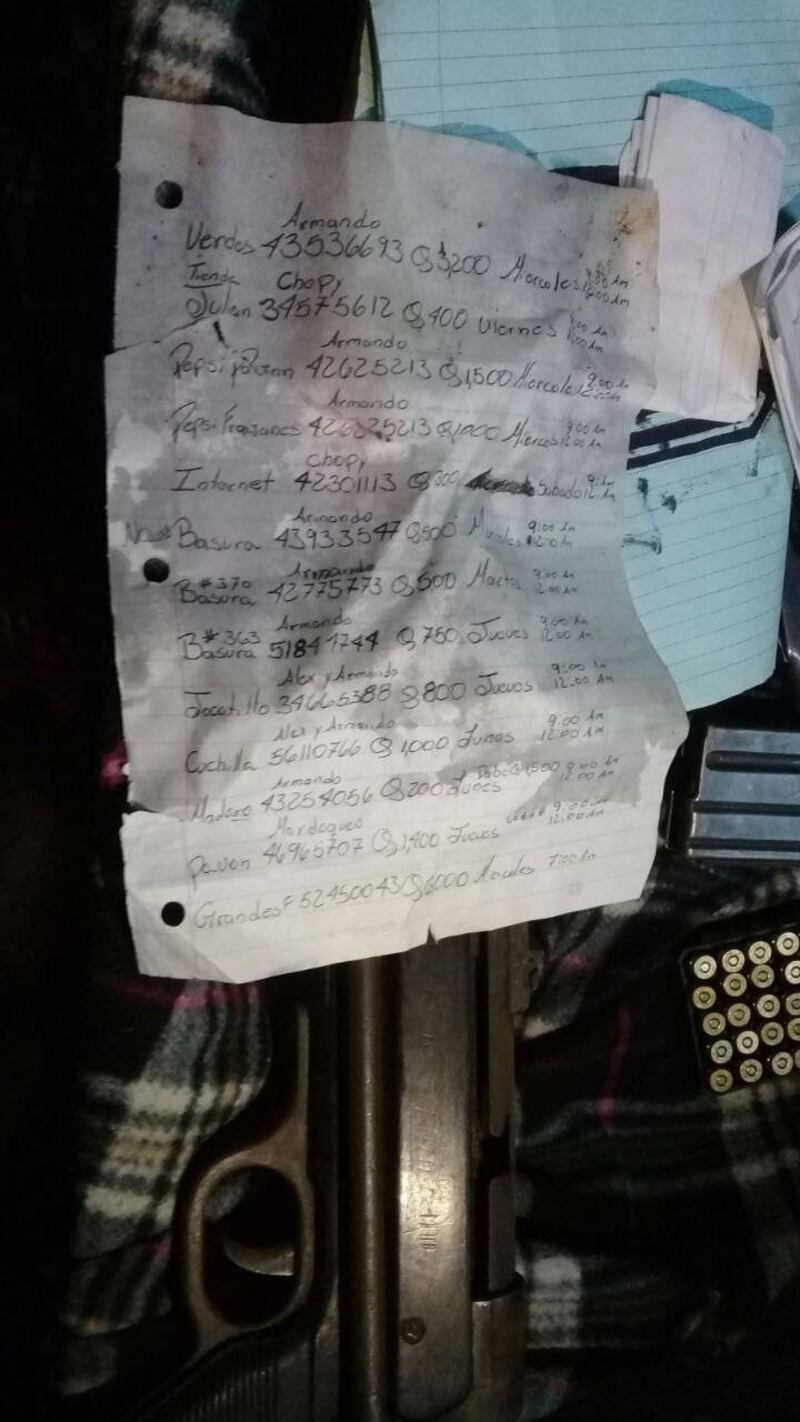 Armando
Verdes 43536693 Q3,200 Miercoles 9:00 Am
12:00 Am
Tienda Chopy
Julian 34575612 Q,400 Viernes 9:00 Am
12:00 Am
Armando
Pepsi Pavon 42625213 Q1,500 Miercole 9:00 Am
12:00 Am
Armando
Pepsi Fraijanes Q1,000 Miercoles 9:00 Am
12:00 Am
Chopy
Internet 42301113 Q300 Sabado 9: Am
12: Am
Armando
Basura 43933547 Q500 9:00 Am
Armando
#370
Basura 42775773 Q,500 Martes 9:00 Am
12:00 Am
Armando
B#363
Basura 51841744 Q,750 Jueves 9:00 Am
12:00 Am
Alex y Armando
34665388 Q800 Jueves 9:00 Am
12:00 Am
Alex y Armando
Cuchilla 56110766 Q1,000 Lunes 9:00 Am
12:00 Am
Armando
43254056 Q200 Lunes 9:00 Am
12:00 Am
Mardoqueo
Pavon 46965707 Q1,400 Jueves 9:00 Am
12:00 Am
52450043 Q6000 7:00 Am